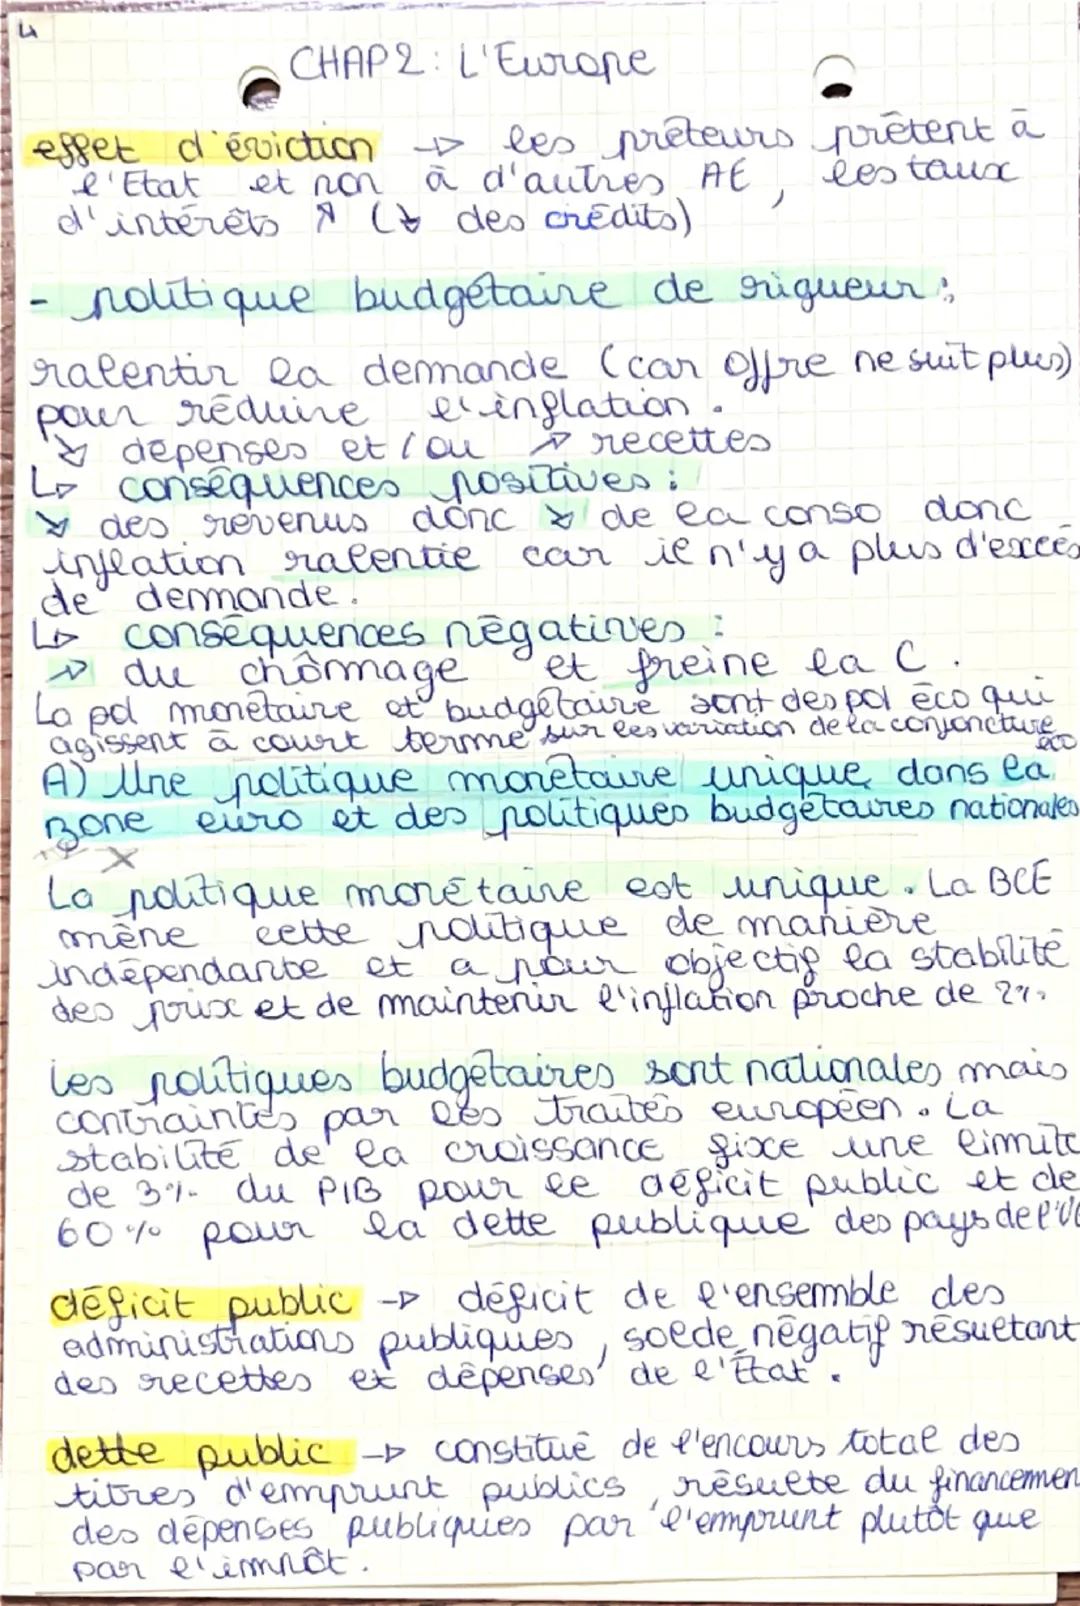 4
CHAP 2 : L'Europe
effet d'éviction → les prêteurs prêtent à
l'Etat et non à d'autres AE, les taux
d'intérêts ↗ (↘ des crédits)
- politique budgétaire de rigueur :
ralentir la demande (car offre ne suit plus)
pour réduire l'inflation.
↘ dépenses et/ou ↗ recettes
↳ conséquences positives :
↘ des revenus donc ↘ de la conso donc
inflation ralentie car il n'y a plus d'excès
de demande.
↳ conséquences négatives :
↗ du chômage et freine la C.
La pol monétaire et budgétaire sont des pol éco qui
agissent à court terme sur les variation de la conjoncture
éco
A) Une politique monétaire unique dans la
zone euro et des politiques budgétaires nationales
La politique monétaire est unique. La BCE
mène cette politique de manière
indépendante et a pour objectif la stabilité
des prix et de maintenir l'inflation proche de 2%.
Les politiques budgétaires sont nationales mais
contraintes par les traités européen. La
stabilité de la croissance fixe une limite
de 3% du PIB pour le déficit public et de
60% pour la dette publique des pays de l'UE
déficit public → déficit de l'ensemble des
administrations publiques, solde négatif résultant
des recettes et dépenses de l'État.
dette public → constitué de l'encours total des
titres d'emprunt publics, résulte du financemen
des dépenses publiques par l'emprunt plutôt que
par l'impôt.